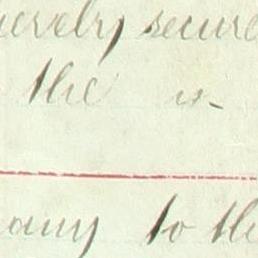 hereby secure
the
any to the